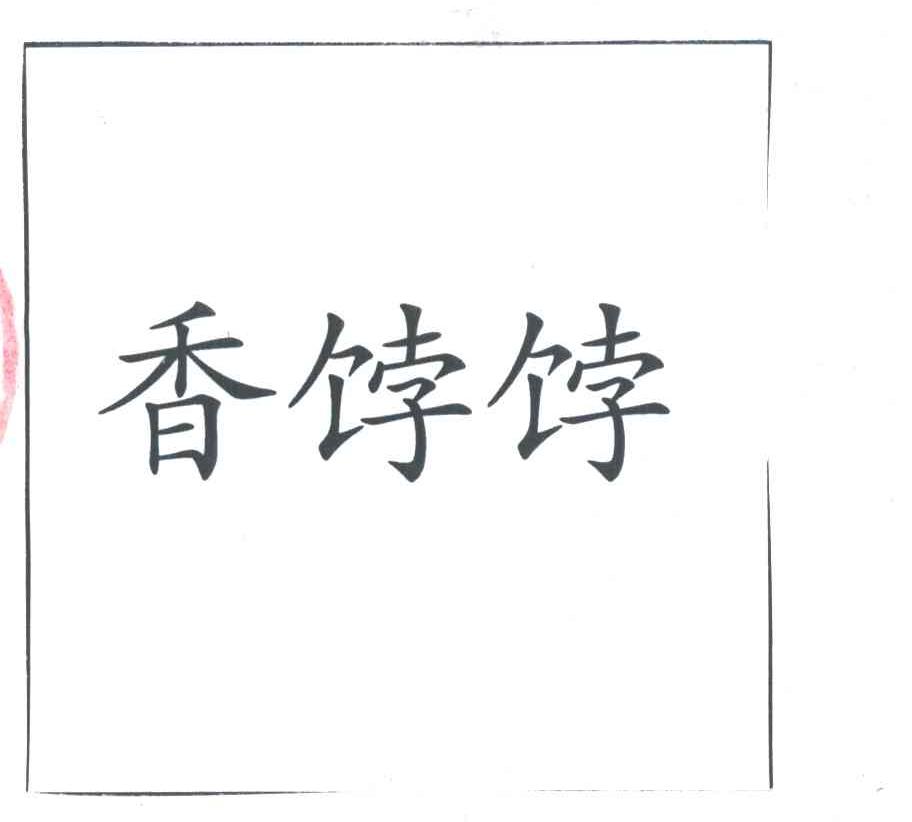 香饽饽